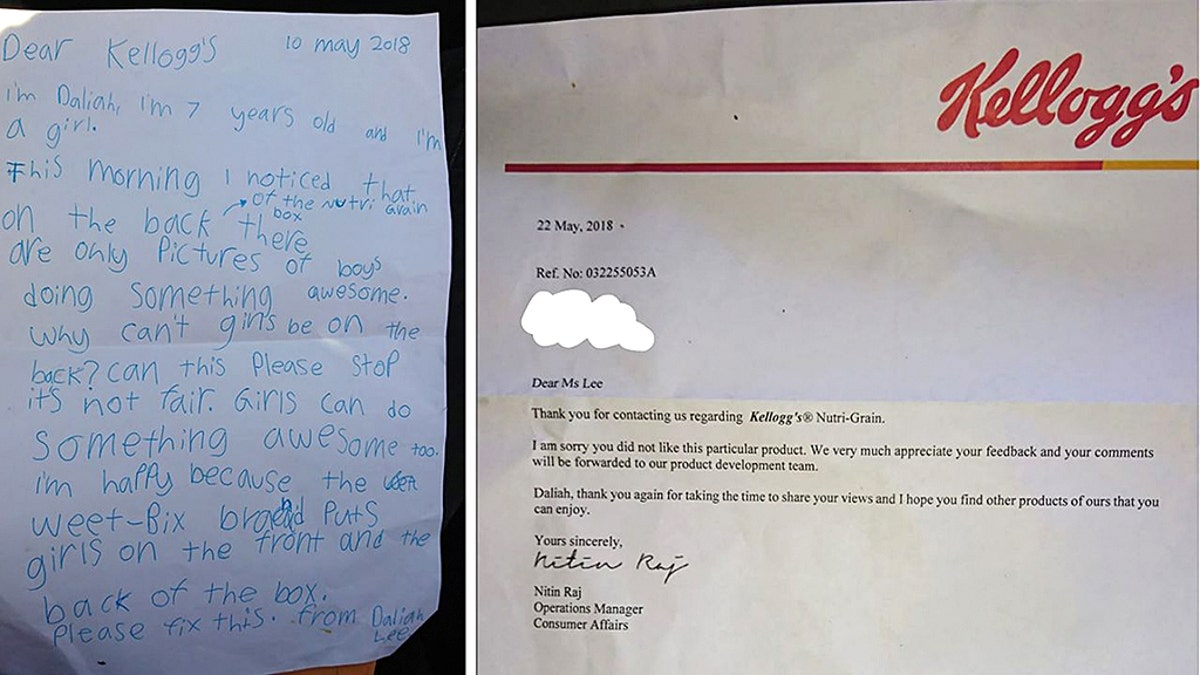 Dear Kellogg's 10 may 2018
i'm Daliah, I'm 7 years old and I'm
a girl.
This morning I noticed that
on the back of the Nutri Grain
box
there
are only Pictures of boys
doing something awesome.
why can't girls be on the
back? can this Please stop
it's not fair. Girls can do
something awesome too.
i'm happy because the
weet-Bix brand Puts
girls on the front and the
back of the box.
Please fix this. from Daliah
Lee
Kellogg's
22 May, 2018
Ref. No: 032255053A
Dear Ms Lee
Thank you for contacting us regarding Kellogg's® Nutri-Grain.
I am sorry you did not like this particular product. We very much appreciate your feedback and your comments
will be forwarded to our product development team.
Daliah, thank you again for taking the time to share your views and I hope you find other products of ours that you
can enjoy.
Yours sincerely,
Nitin Raj
Nitin Raj
Operations Manager
Consumer Affairs